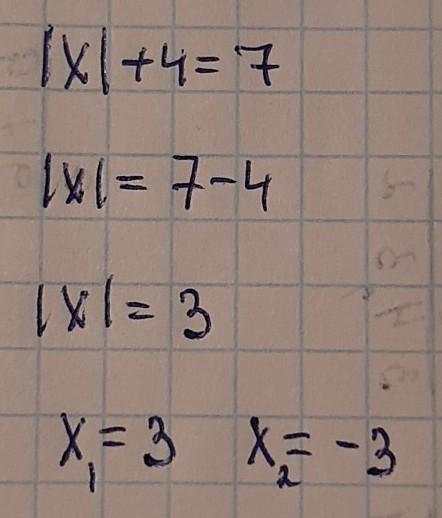 |x| + 4 = 7
|x| = 7 - 4
|x| = 3
x₁ = 3 x₂ = -3